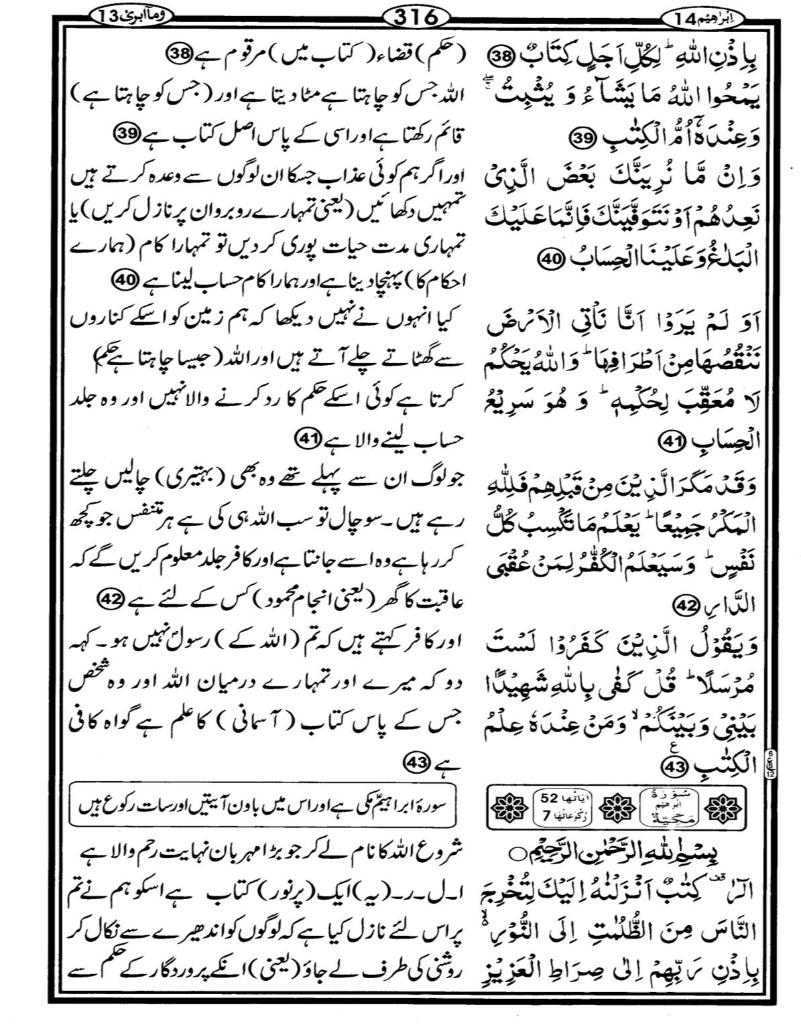 ابراهیم 14
316
وماابرئ 13
بِاِذْنِ اللّٰهِ ؕ لِكُلِّ اَجَلٍ كِتَابٌ 38
يَمْحُوا اللّٰهُ مَا يَشَآءُ وَ يُثْبِتُ ۚۖ
وَعِنْدَهٗۤ اُمُّ الْكِتٰبِ 39
وَاِنْ مَّا نُرِيَنَّكَ بَعْضَ الَّذِىْ
نَعِدُهُمْ اَوْ نَتَوَفَّيَنَّكَ فَاِنَّمَا عَلَيْكَ
الْبَلٰغُ وَعَلَيْنَا الْحِسَابُ 40
اَوَ لَمْ يَرَوْا اَنَّا نَاْتِى الْاَرْضَ
نَنْقُصُهَا مِنْ اَطْرَافِهَا ؕ وَاللّٰهُ يَحْكُمُ
لَا مُعَقِّبَ لِحُكْمِهٖ ؕ وَ هُوَ سَرِيْعُ
الْحِسَابِ 41
وَقَدْ مَكَرَ الَّذِيْنَ مِنْ قَبْلِهِمْ فَلِلّٰهِ
الْمَكْرُ جَمِيْعًا ؕ يَعْلَمُ مَا تَكْسِبُ كُلُّ
نَفْسٍ ؕ وَسَيَعْلَمُ الْكُفّٰرُ لِمَنْ عُقْبَى
الدَّارِ 42
وَيَقُوْلُ الَّذِيْنَ كَفَرُوْا لَسْتَ
مُرْسَلًا ؕ قُلْ كَفٰى بِاللّٰهِ شَهِيْدًۢا
بَيْنِىْ وَبَيْنَكُمْ ۙ وَمَنْ عِنْدَهٗ عِلْمُ
الْكِتٰبِ 43 ع
سُوْرَةُ ابراهيم مَكِّيَّةٌ
اٰيَاتُهَا 52
رُكُوعَاتُهَا 7
بِسْمِ اللّٰهِ الرَّحْمٰنِ الرَّحِيْمِ
الٓرٰ ۟ كِتٰبٌ اَنْزَلْنٰهُ اِلَيْكَ لِتُخْرِجَ
النَّاسَ مِنَ الظُّلُمٰتِ اِلَى النُّوْرِ ۙ
بِاِذْنِ رَبِّهِمْ اِلٰى صِرَاطِ الْعَزِيْزِ
(حکم) قضاء (کتاب میں) مرقوم ہے 38
اللہ جس کو چاہتا ہے مٹا دیتا ہے اور (جس کو چاہتا ہے)
قائم رکھتا ہے اور اسی کے پاس اصل کتاب ہے 39
اور اگر ہم کوئی عذاب جسکا ان لوگوں سے وعدہ کرتے ہیں
تمہیں دکھائیں (یعنی تمہارے روبرو ان پر نازل کریں) یا
تمہاری مدت حیات پوری کر دیں تو تمہارا کام (ہمارے
احکام کا) پہنچا دینا ہے اور ہمارا کام حساب لینا ہے 40
کیا انہوں نے نہیں دیکھا کہ ہم زمین کو اسکے کناروں
سے گھٹاتے چلے آتے ہیں اور اللہ (جیسا چاہتا ہے حکم)
کرتا ہے کوئی اسکے حکم کا رد کرنے والا نہیں اور وہ جلد
حساب لینے والا ہے 41
جو لوگ ان سے پہلے تھے وہ بھی (بہتیری) چالیں چلتے
رہے ہیں۔ سو چال تو سب اللہ ہی کی ہے ہر متنفس جو کچھ
کر رہا ہے وہ اسے جانتا ہے اور کافر جلد معلوم کریں گے کہ
عاقبت کا گھر (یعنی انجام محمود) کس کے لئے ہے 42
اور کافر کہتے ہیں کہ تم (اللہ کے) رسول نہیں ہو۔ کہہ
دو کہ میرے اور تمہارے درمیان اللہ اور وہ شخص
جس کے پاس کتاب (آسمانی) کا علم ہے گواہ کافی
ہے 43
سورۂ ابراہیم مکی ہے اور اس میں باون آیتیں اور سات رکوع ہیں
شروع اللہ کا نام لے کر جو بڑا مہربان نہایت رحم والا ہے
ا۔ل۔ر۔ (یہ) ایک (پرنور) کتاب ہے اسکو ہم نے تم
پر اس لئے نازل کیا ہے کہ لوگوں کو اندھیرے سے نکال کر
روشنی کی طرف لے جاؤ (یعنی) انکے پروردگار کے حکم سے